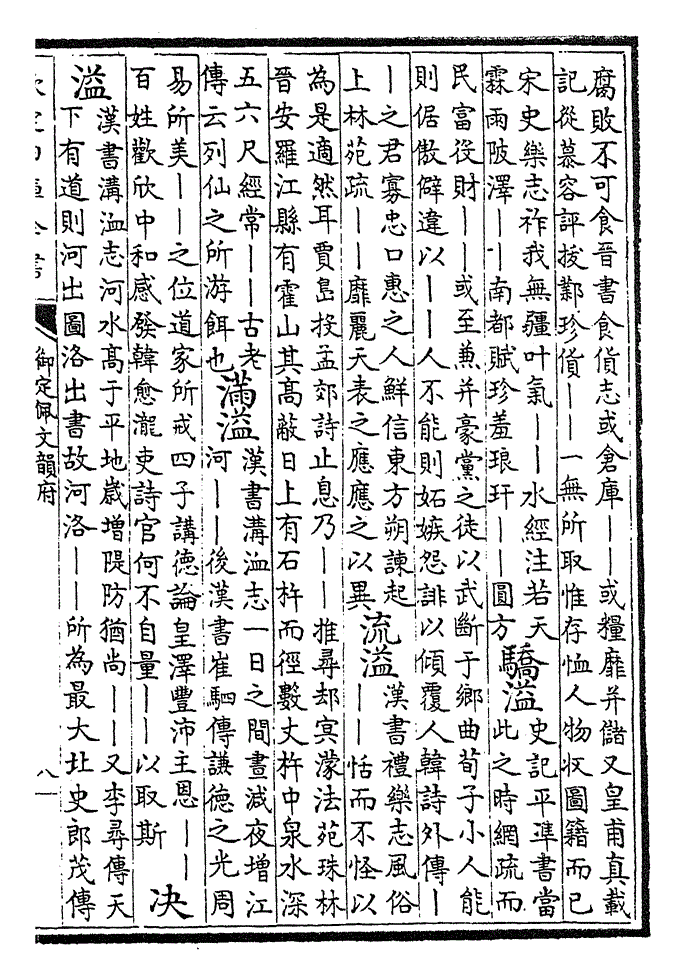 腐敗不可食晉書食貨志或倉庫——或糧靡并儲又皇甫真載
記從慕容評拔鄴珍貨——一無所取惟存恤人物收圖籍而已
宋史樂志祚我無疆叶氣——水經注若天
霖雨陂澤——南都賦珍羞琅玕——圓方
驕溢
史記平準書當
此之時網疏而
民富役財——或至兼并豪黨之徒以武斷于鄉曲荀子小人能
則倨傲僻違以——人不能則妬嫉怨誹以傾覆人韓詩外傳—
—之君寡忠口惠之人鮮信東方朔諫起
上林苑疏——靡麗天表之應應之以異
流溢
漢書禮樂志風俗
——恬而不怪以
為是適然耳賈島投孟郊詩止息乃——推尋却冥濛法苑珠林
晉安羅江縣有霍山其高蔽日上有石杵而徑數丈杵中泉水深
五六尺經常——古老
傳云列仙之所游餌也
滿溢
漢書溝洫志一日之間晝減夜增江
河——後漢書崔駰傳謙德之光周
易所美——之位道家所戒四子講德論皇澤豐沛主恩——
百姓歡欣中和感發韓愈瀧吏詩官何不自量——以取斯
決
溢
漢書溝洫志河水高于平地歲增隄防猶尚——又李尋傳天
下有道則河出圖洛出書故河洛——所為最大北史郎茂傳
御定佩文韻府